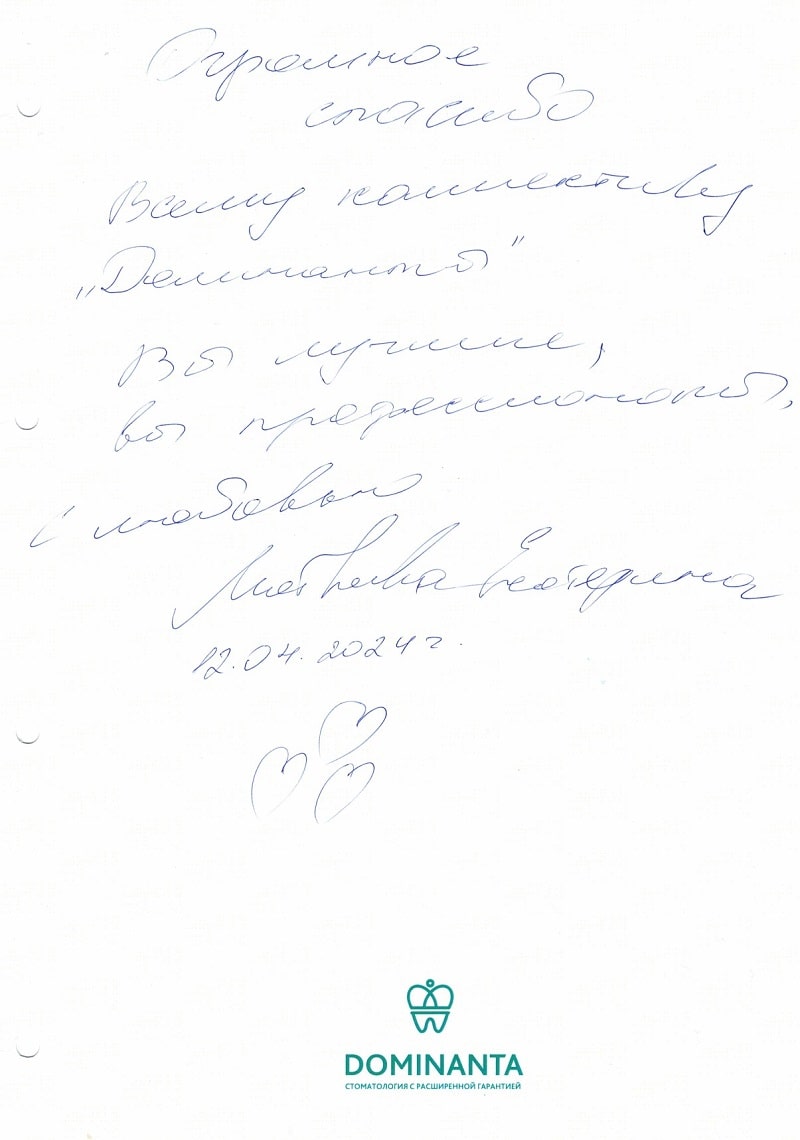 Огромное
спасибо
Всему коллективу
„Доминанты"
Вы лучшие,
вы профессионалы,
с любовью
Матвеева Екатерина
12.04.2024 г.
DOMINANTA
СТОМАТОЛОГИЯ С РАСШИРЕННОЙ ГАРАНТИЕЙ